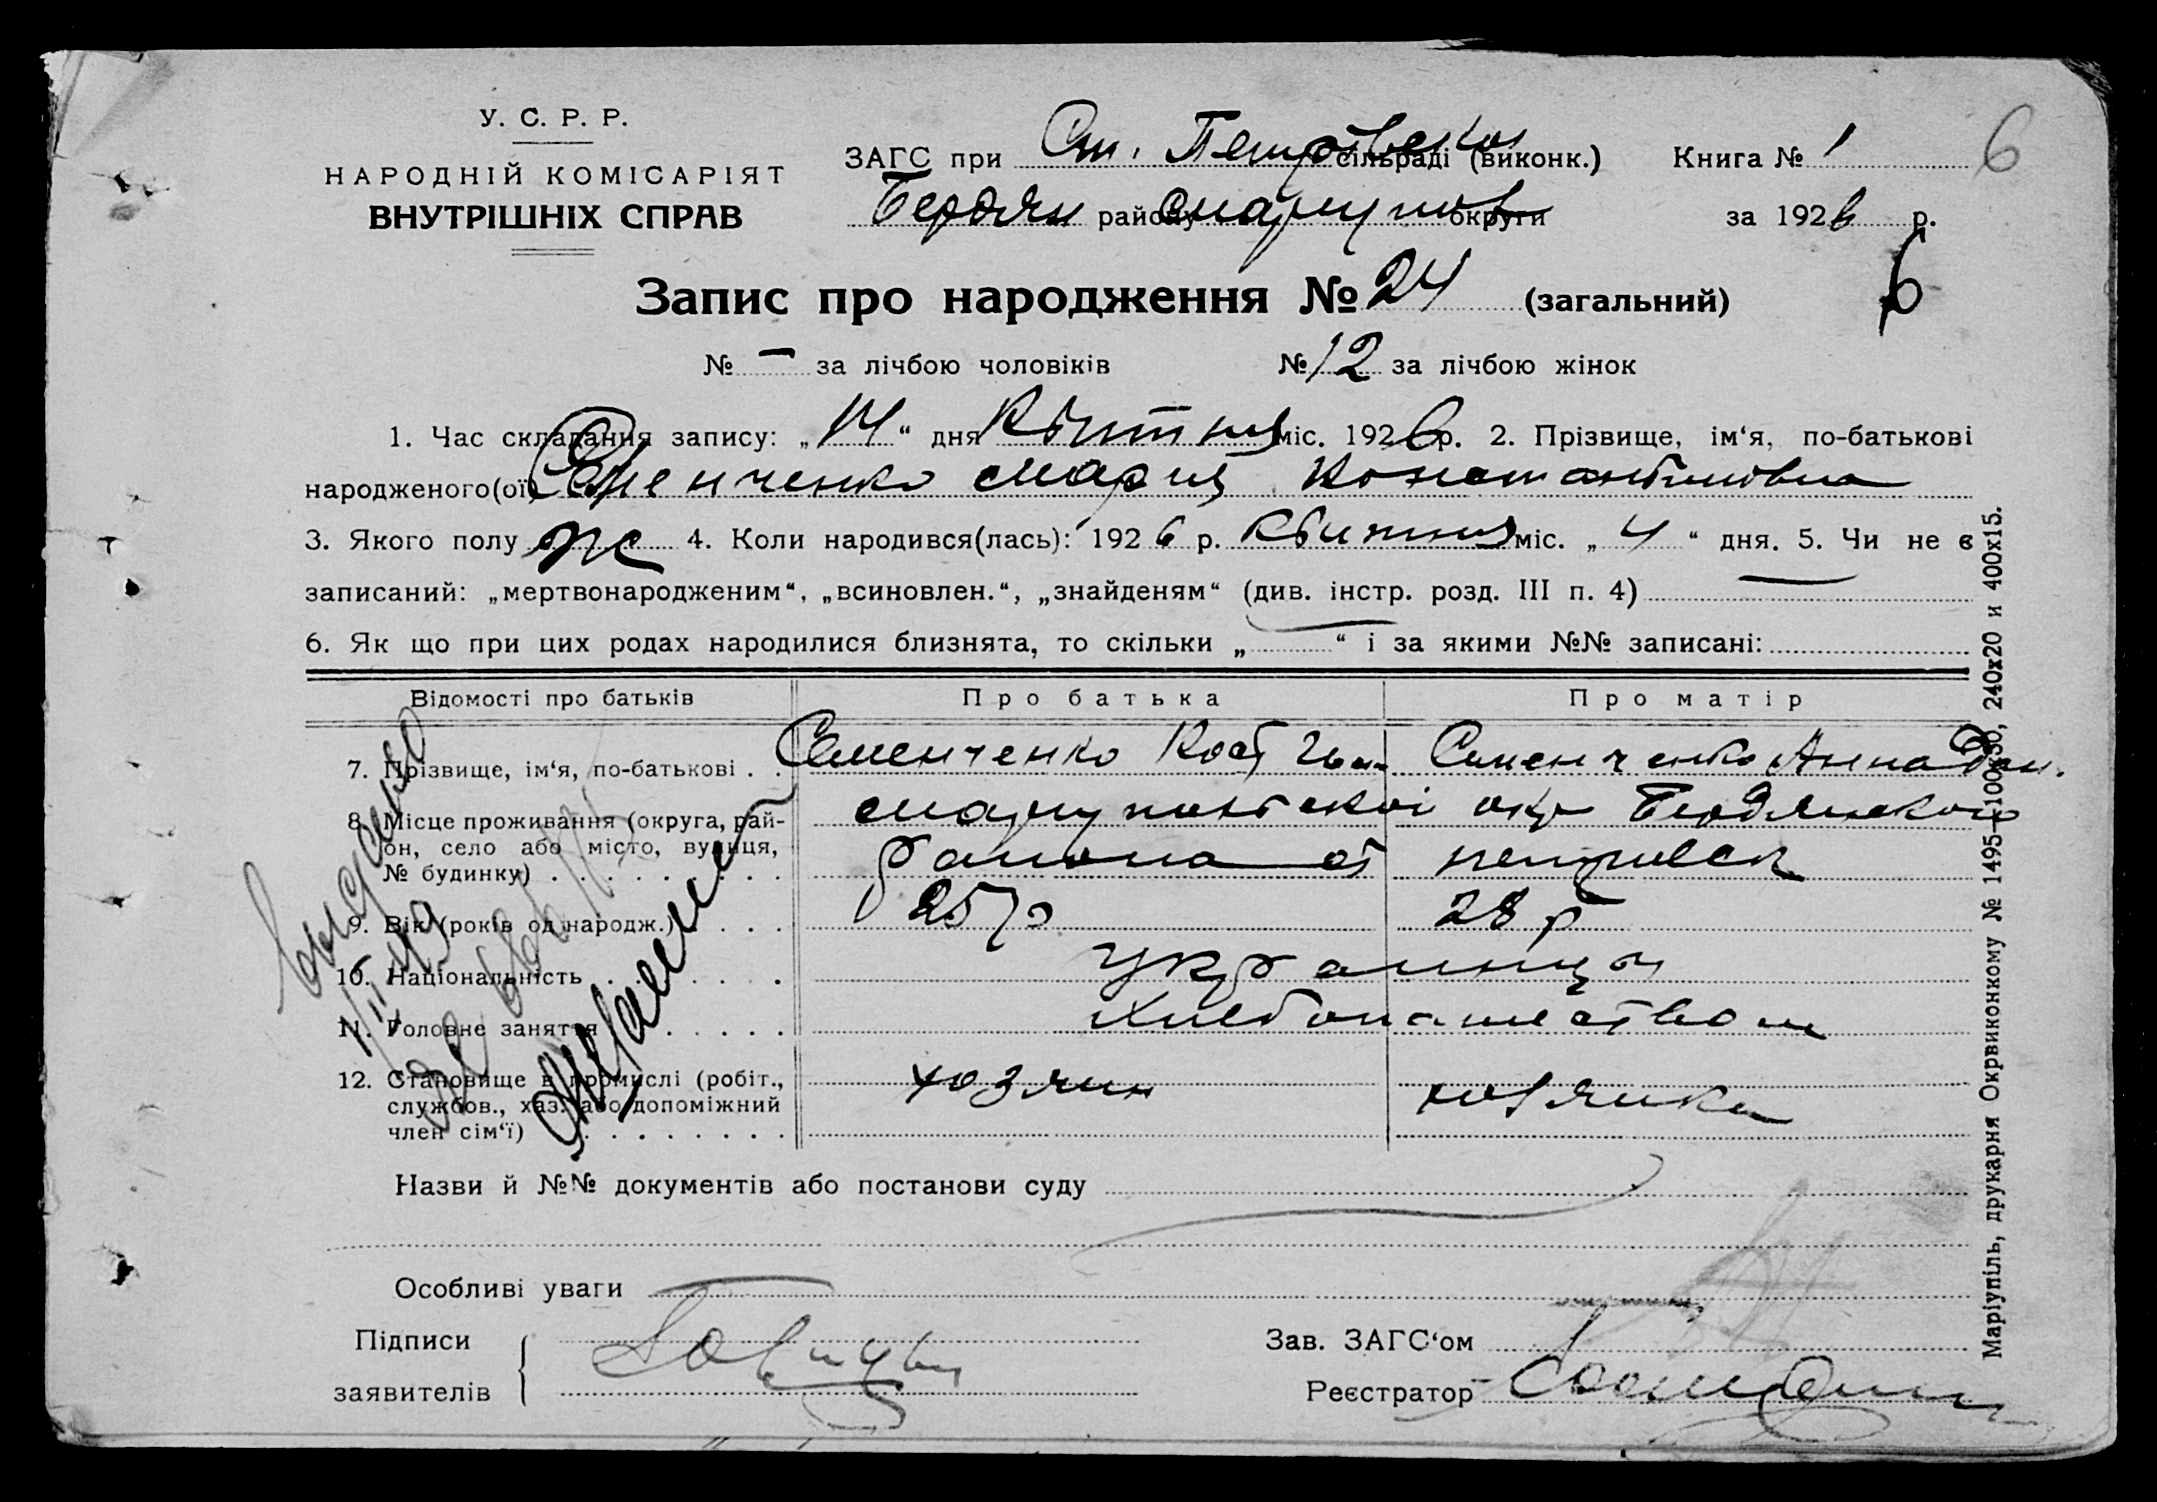 У. С. Р. Р.
НАРОДНІЙ КОМІСАРІЯТ
ВНУТРІШНІХ СПРАВ
ЗАГС при Ст. Петровской сільраді (виконк.) Книга № 1 6
Бердян району Мариупов округи за 1926 р.
6
Запис про народження № 24 (загальний)
№ — за лічбою чоловіків № 12 за лічбою жінок
1. Час складання запису: „14“ дня Квитня міс. 1926 р. 2. Прізвище, ім‘я, по-батькові
народженого(ої) Семенченко Мария Константиновна
3. Якого полу ж 4. Коли народився(лась): 1926 р. Квитня міс. „4“ дня. 5. Чи не є
записаний: „мертвонародженим“, „всиновлен.“, „знайденям“ (див. інстр. розд. III п. 4) —
6. Як що при цих родах народилися близнята, то скільки „—“ і за якими №№ записані:
Відомості про батьків Про батька Про матір
7. Прізвище, ім‘я, по-батькові . . Семенченко Кост Семенченко Анна
8. Місце проживання (округа, рай-
он, село або місто, вулиця,
№ будинку) . . . . . . . . .
Мариупольской окр Бердянского
района ст петровск
9. Вік (років од народж.) . . . . 25 р 28 р
10. Національність . . . . . . . украинцы
11. Головне заняття . . . . . . хлебопашеством
12. Становище в промислі (робіт.,
службов., хаз. або допоміжний
член сім‘ї) . . . . . . . .
хозяин хозяйка
выдано
Назви й №№ документів або постанови суду
Особливі уваги
Підписи
заявителів
Зав. ЗАГС‘ом
Реєстратор
Маріупіль, друкарня Окрвиконкому № 1495—100×30, 240х20 и 400х15.